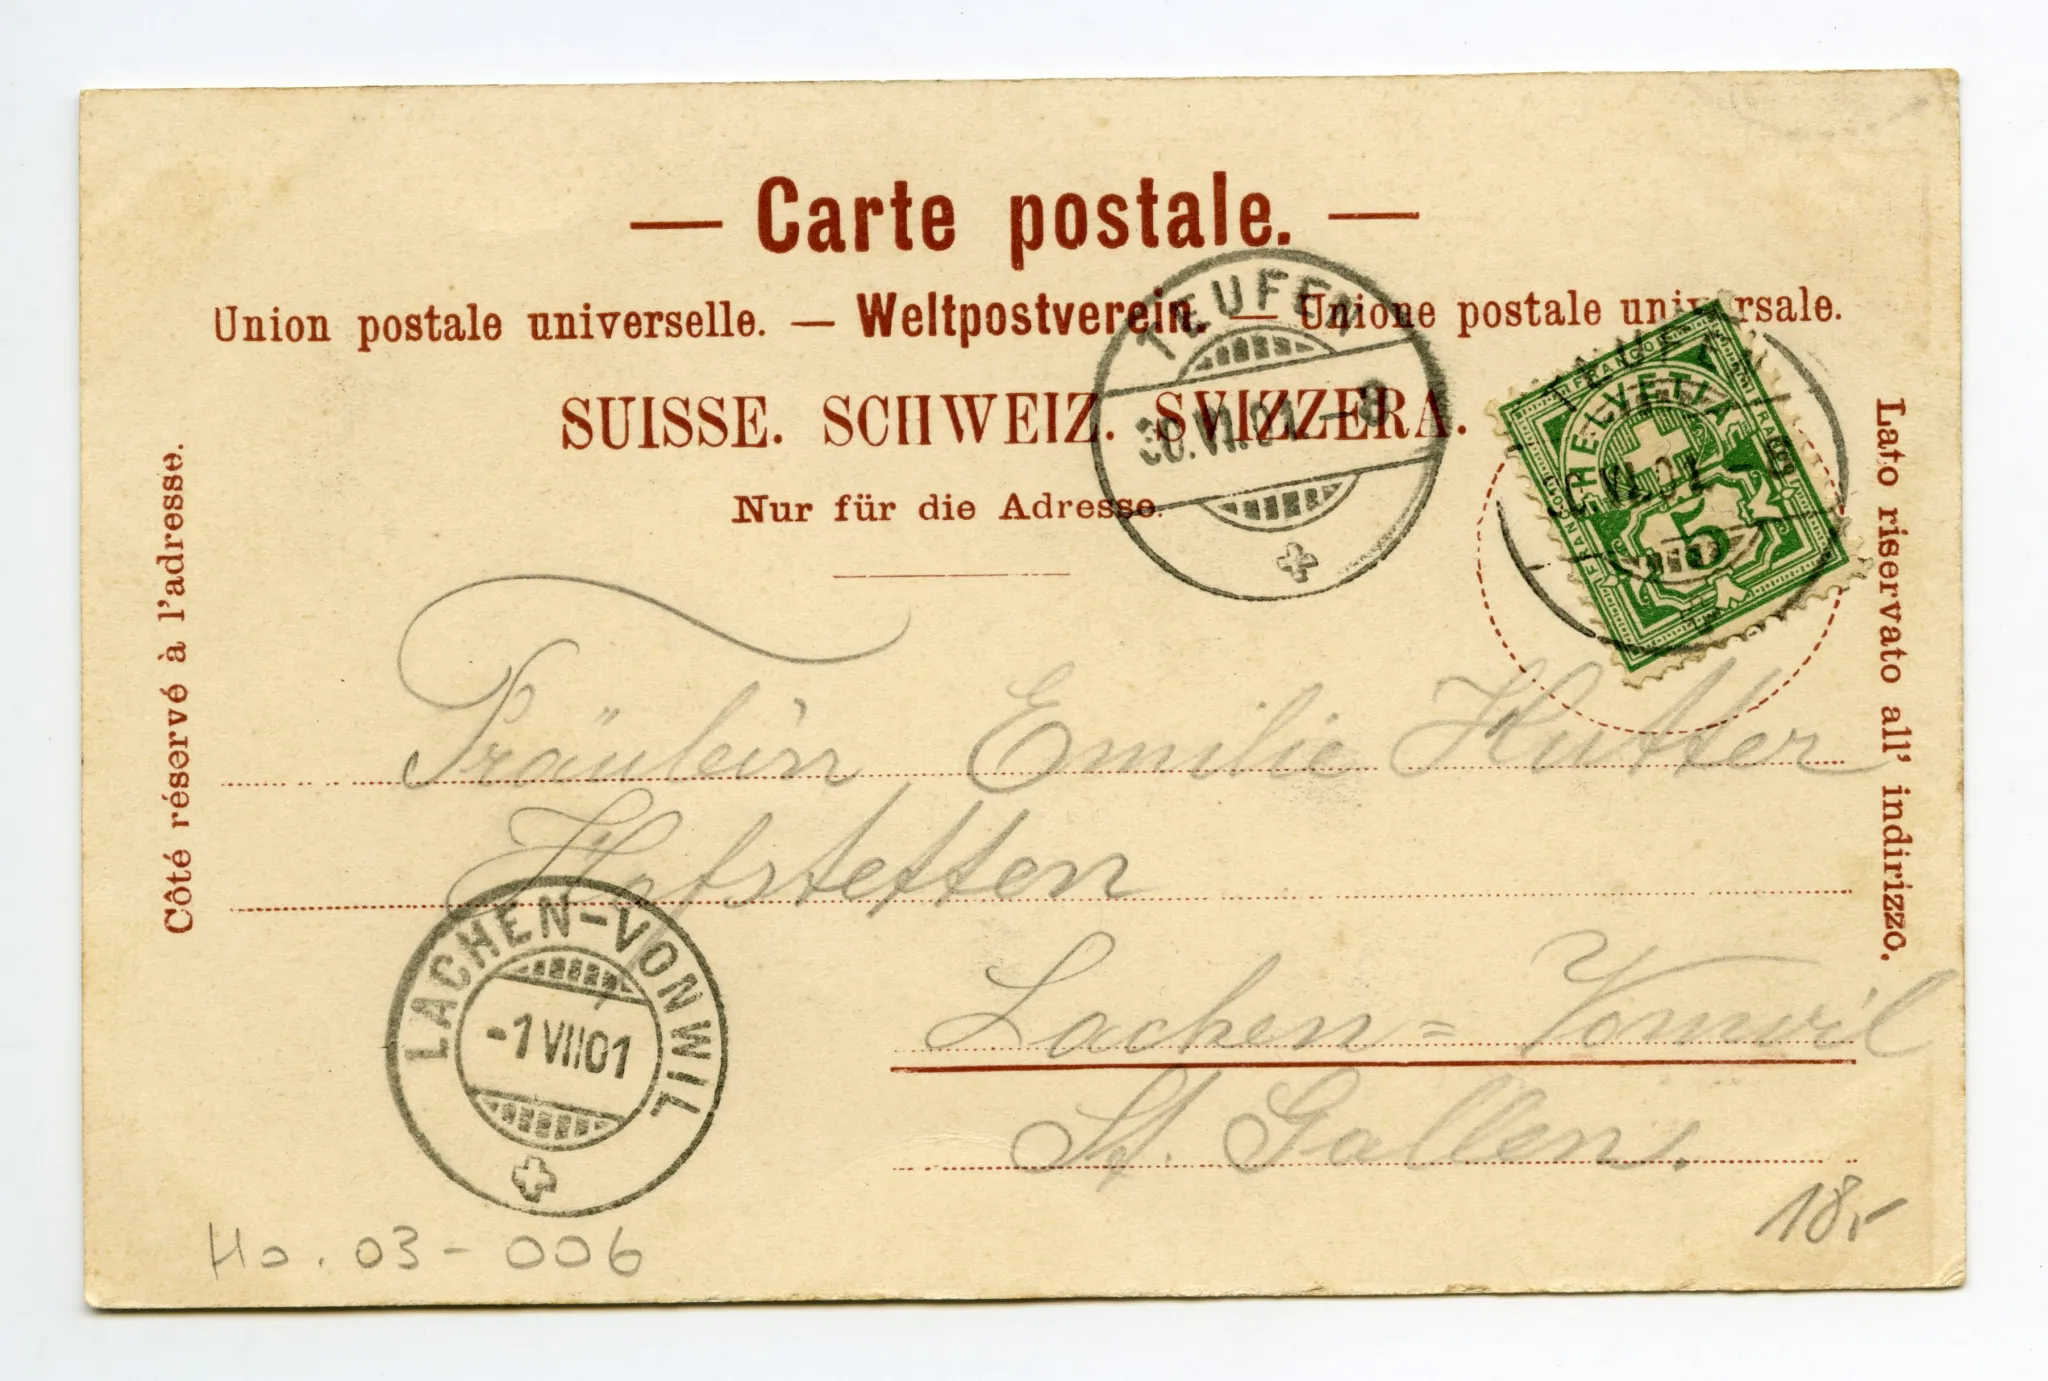 — Carte postale. —
Union postale universelle. — Weltpostverein. — Unione postale universale.
SUISSE. SCHWEIZ. SVIZZERA.
Nur für die Adresse.
Côté réservé à l'adresse.
Lato riservato all' indirizzo.
TEUFEN
30.VI.01.-8
FRANCO
HELVETIA
FRANCO
FRANCO
5
VI.01
Fräulein Emilie Hutter
Hofstetten
Lachen=Vonwil
St. Gallen.
LACHEN-VONWIL
-1 VII 01
Ho. 03-006
18.-